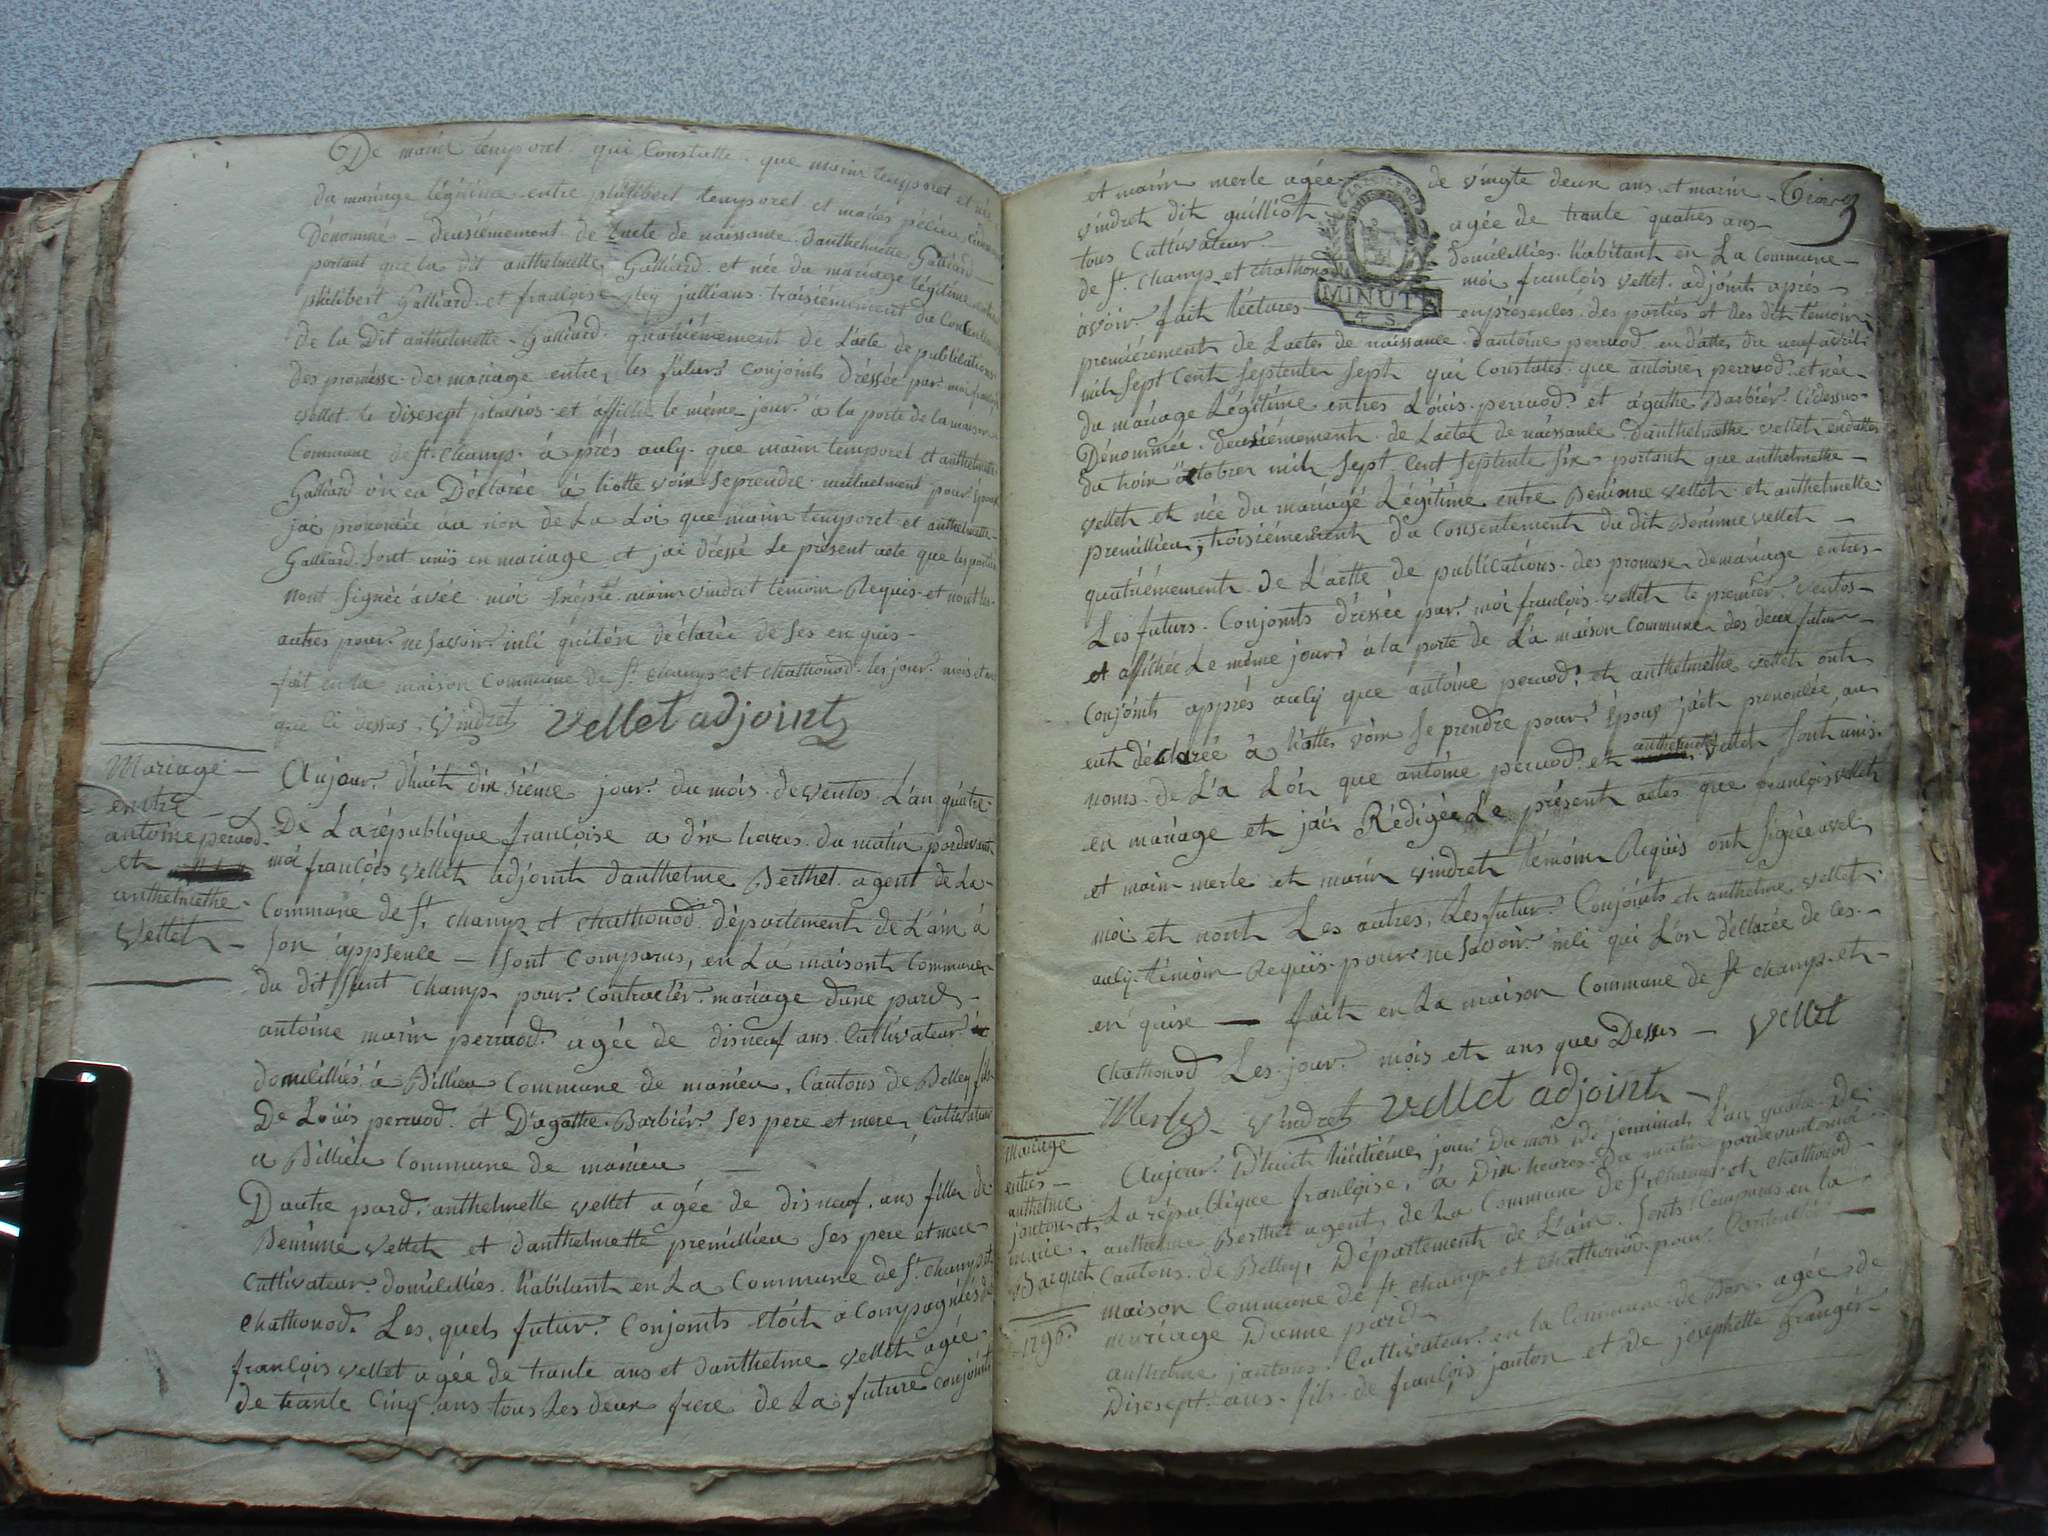 De marin temporet qui Constatte que marin temporet et née
du mariage légitime entre philibert temporet et
Dénommé - deusiémement de Lacte de naissance danthelmette Galliard
portant que la dit anthelmette Galliard et née du mariage légitime entre
philibert Galliard et françoise jullians troisiémement du Consentement
de la Dit anthelmette Galliard quatriémement de L'acte de publications
des promèsse de mariage entre les futurs conjoints dréssée par moi françois
vellet le disesept pluvios et affiché le même jour a la porte de la maison
Commune de St Champ a prés auly que marin temporet et anthelmette
Galliard on en Déclarée à hotte voix se prendre mutuelment pour Epoux
jai prononcée au non de La Loi que marin temporet et anthelmette
Galliard sont unis en mariage et jai dréssé Le présent acte que les parties
nont signée avéc moi marin vindret témoin Requis et nont les
autres pour ne Savoir déclarée de ses enquis
fait en la maison Commune de St Champ et Chathonod les jour mois et an
que ci dessus vindret vellet adjoint
Mariage
entre
antoine perrod
et
anthelmethe
Vellet
Aujour d'huit dix siéme jour du mois de ventos L'an quatre
De La république françoise a dix heures du matin pardevant
moi françois vellet adjoint danthelme Berthet agent de La
Commune de St Champ et Chathonod département de L'ain à
son appsence - sont comparus, en La maisont Commune
du dit sunt Champ pour contractér mariage dune pard
antoine marin perruod agée de disneuf ans Cultivateur
domicilliés à Billieu Commune de manieu, Cantons de Belley fils
De Loüis perruod et D'agathe Barbiér ses pere et mere Cultivateur
a Billieu Commune de manieu
Dautre pard anthelmette vellet agée de disneuf ans fille de
Beninne Vellet et danthelmette premillieu ses pere et mere
Cultivateur domicilliés habitant en La Commune de St Champ et
Chathonod Les quels futur Conjoints etoit acompagnés de
françois vellet agée de trante ans et danthelme vellet agée
de trante Cinq ans tous Les deux frere de La future conjointe
et marin merle agée de vingte deux ans et marin
vindret dit guilliot agée de trante quatres ans
tous Cultivateur domicilliés habitant en La Commune
de St Champ et Chathonod moi françois vellet adjoint aprés
MINUTE
4 S
avoir fait Léctures enprésences des partiés et des dit témoin
premiérement de Lactes de naissance dantoine perruod en dattes du neuf avril
mil sept cent septente sept qui Constates que antoine perruod et née
du mariage Légitime entres Loüis perruod et agathe Barbiér cidessus
Dénommée deusiémement de Lactes de naissance danthelmethe vellet en dattes
du troix octobre mil sept cent septente six portant que anthelmethe
vellet et née du mariagé Légitime entre Beninne vellet et anthelmette
premillieu, troisiémement du Consentement du dit Beninne vellet
quatriémement de L'actte de publications des promesse de mariage entres
Les futurs Conjoints dréssée par moi françois vellet le premiér ventos
et affichée Le même jour à la porte de La maison Commune des deux futur
Conjoints apprés auly que antoine perruod et anthelmethe vellet ont
eut déclarée à hattes voix se prendre pour Epoux jait prononcée au
noms de La Loi que antoine perruod et anthelmet vellet sont unis
en mariage et jai Rédigée Le présent actes que françois vellet
et marin merle et marin vindret témoin Requis ont signée avéc
moi et nont Les autres, Les futur Conjoints et anthelme vellet
auly témoin Requis pour ne savoir qui L'on déclarée de ces
en quise - fait en La maison Commune de St Champ et
Chathonod Les jour mois et ans que Dessus - Vellet
Merle vindret Vellet adjoint
Mariage
entres
anthelme
jantons et
marie
Bacquet
1796
Aujour D'huit huitiéme jour Du mois de jerminal L'an quatre De
La république françoise, à Dix heures Du matin pardevant moi
anthelme Berthet agent de La Commune de St Champ et Chathonod
Cantons de Belley, Département de L'ain sonts Comparus en La
maison Commune de St Champ et Chathonod pour Contracté
mariage Dunne pard
anthelme jantons Cultivateur en la Commune de agée de
Disesept ans fils de françois janton et de josephette